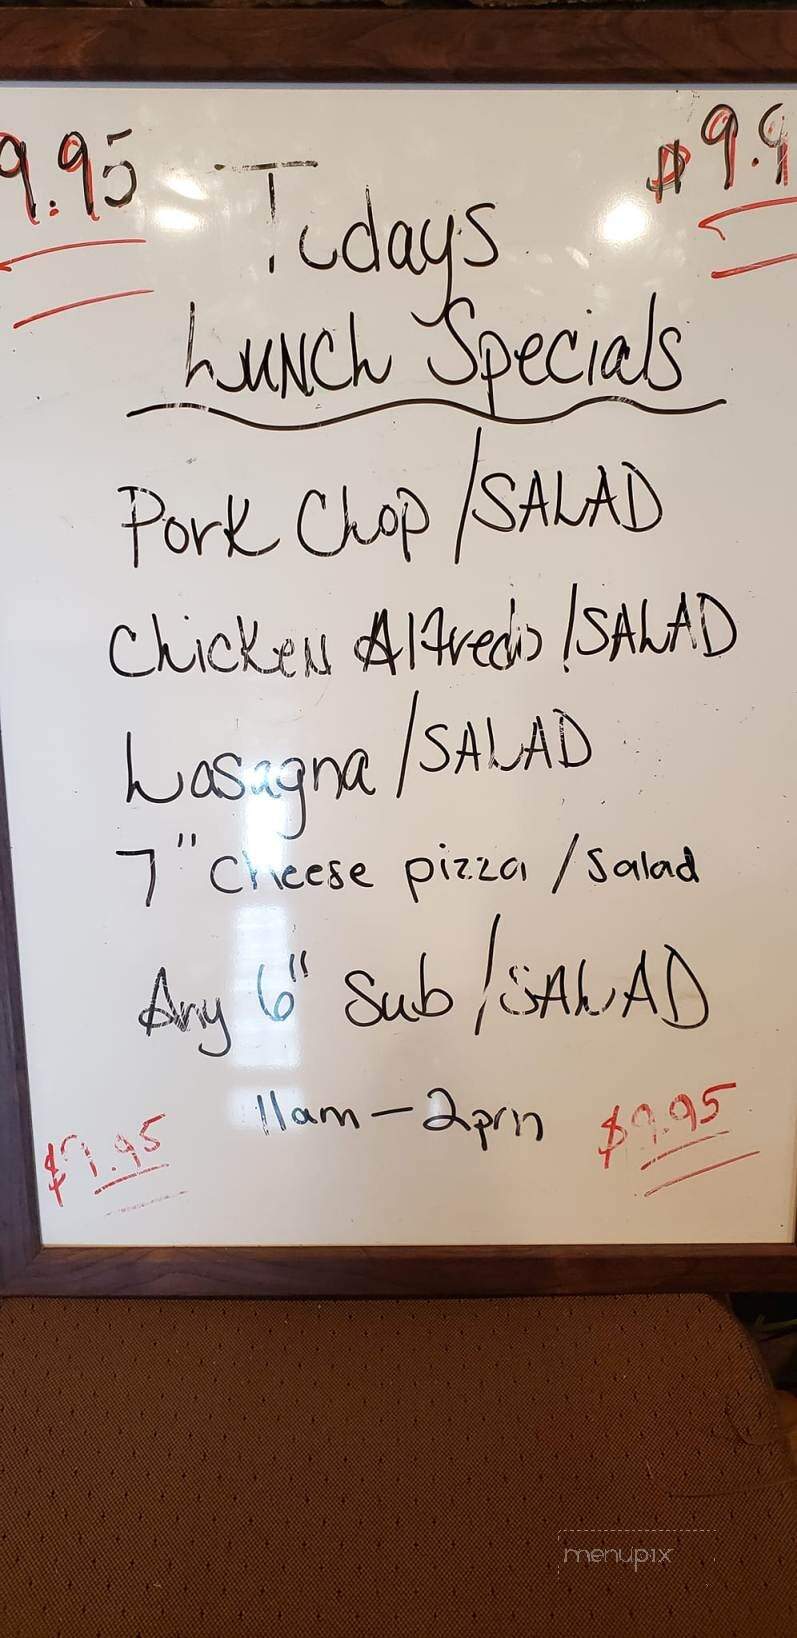 9.95 $9.9
Todays
Lunch Specials
Pork Chop /SALAD
Chicken Alfredo /SALAD
Lasagna /SALAD
7" cheese pizza /salad
Any 6" Sub /SALAD
11am - 2pm
$9.95 $9.95
menupix